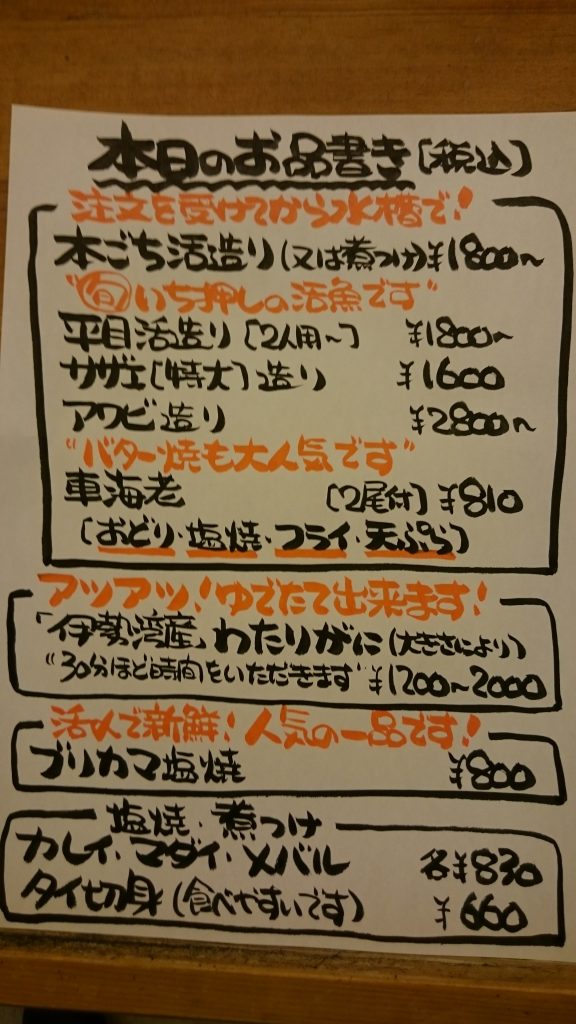 本日のお品書き〔税込〕
注文を受けてから水槽で!
本ごち活造り(又は煮つけ)¥1800〜
"旬いち押しの活魚です"
平目活造り〔2人用〜〕 ¥1800〜
サザエ〔特大〕造り ¥1600
アワビ造り ¥2800〜
"バター焼も大人気です"
車海老 〔2尾付〕¥810
〔おどり・塩焼・フライ・天ぷら〕
アツアツ!ゆでたて出来ます!
「伊勢湾産」わたりがに(大きさにより)
"30分ほど時間をいただきます" ¥1200〜2000
活〆で新鮮!人気の一品です!
ブリカマ塩焼 ¥800
塩焼・煮つけ
カレイ・マダイ・メバル 各¥830
タイ切身(食べやすいです) ¥660